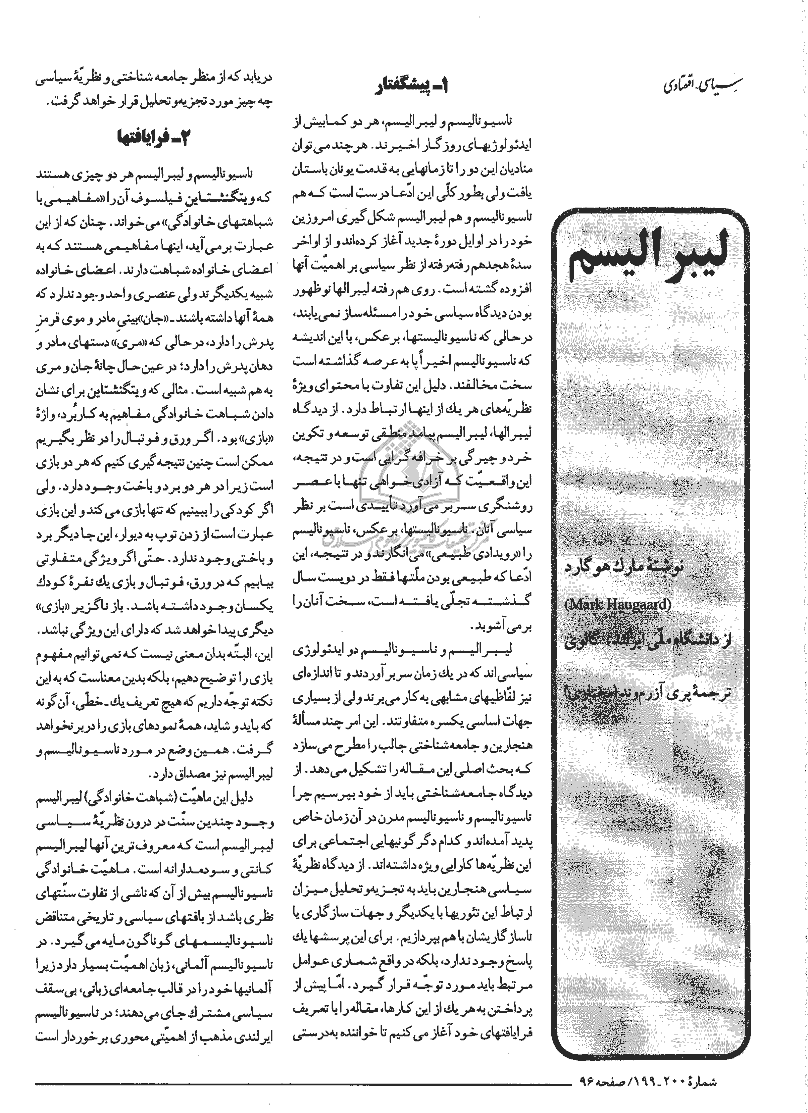 سیاسی-اقتصادی
لیبرالیسم
نوشتهٔ مارك هوگارد
(Mark Haugaard)
از دانشگاه ملّی ایرلند، گالوی
ترجمهٔ پری آزرم‌وند
۱ـ پیشگفتار
ناسیونالیسم و لیبرالیسم، هر دو کمابیش از
ایدئولوژیهای روزگار اخیرند. هرچند می‌توان
منادیان این دو را تا زمانهایی به قدمت یونان باستان
یافت ولی بطور کلّی این ادّعا درست است که هم
ناسیونالیسم و هم لیبرالیسم شکل‌گیری امروزین
خود را در اوایل دورهٔ جدید آغاز کرده‌اند و از اواخر
سدهٔ هجدهم رفته‌رفته از نظر سیاسی بر اهمیّت آنها
افزوده گشته است. روی هم رفته لیبرالها نوظهور
بودن دیدگاه سیاسی خود را مسئله‌ساز نمی‌یابند،
درحالی که ناسیونالیستها، برعکس، با این اندیشه
که ناسیونالیسم اخیراً پا به عرصه گذاشته است
سخت مخالفند. دلیل این تفاوت با محتوای ویژهٔ
نظریّه‌های هر یك از اینها ارتباط دارد. از دیدگاه
لیبرالها، لیبرالیسم پیامد منطقی توسعه و تکوین
خرد و چیرگی بر خرافه‌گرایی است و در نتیجه،
این واقعیّت که آزادی‌خواهی تنها با عصر
روشنگری سر بر می‌آورد تاییدی است بر نظر
سیاسی آنان. ناسیونالیستها، برعکس، ناسیونالیسم
را «رویدادی طبیعی» می‌انگارند و در نتیجه، این
ادّعا که طبیعی بودن ملّتها فقط در دویست سال
گذشته تجلّی یافته است، سخت آنان را
برمی‌آشوبد.
لیبرالیسم و ناسیونالیسم دو ایدئولوژی
سیاسی‌اند که در یك زمان سر برآوردند و تا اندازه‌ای
نیز لفّاظیهای مشابهی به کار می‌برند ولی از بسیاری
جهات اساسی یکسره متفاوتند. این امر چند مسألهٔ
هنجارین و جامعه‌شناختی جالب را مطرح می‌سازد
که بحث اصلی این مقاله را تشکیل می‌دهد. از
دیدگاه جامعه‌شناختی باید از خود بپرسیم چرا
ناسیونالیسم و ناسیونالیسم مدرن در آن زمان خاص
پدید آمده‌اند و کدام دگرگونیهایی اجتماعی برای
این نظریّه‌ها کارایی ویژه داشته‌اند. از دیدگاه نظریّهٔ
سیاسی هنجارین باید به تجزیه‌وتحلیل میزان
ارتباط این تئوریها با یکدیگر و جهات سازگاری یا
ناسازگاریشان با هم بپردازیم. برای این پرسشها یك
پاسخ وجود ندارد، بلکه در واقع شماری عوامل
مرتبط باید مورد توجّه قرار گیرد. امّا پیش از
پرداختن به هر یك از این کارها، مقاله را با تعریف
فرایافتهای خود آغاز می‌کنیم تا خواننده به‌درستی
دریابد که از منظر جامعه شناختی و نظریّهٔ سیاسی
چه چیز مورد تجزیه‌وتحلیل قرار خواهد گرفت.
۲ـ فرایافتها
ناسیونالیسم و لیبرالیسم هر دو چیزی هستند
که ویتگنشتاین فیلسوف آن را «مفاهیمی با
شباهتهای خانوادگی» می‌خواند. چنان که از این
عبارت برمی‌آید، اینها مفاهیمی هستند که به
اعضای خانواده شباهت دارند. اعضای خانواده
شبیه یکدیگرند ولی عنصری واحد وجود ندارد که
همهٔ آنها داشته باشند ـ «جان» بینی مادر و موی قرمز
پدرش را دارد، در حالی که «مری» دستهای مادر و
دهان پدرش را دارد؛ در عین‌حال چانهٔ جان و مری
به هم شبیه است. مثالی که ویتگنشتاین برای نشان
دادن شباهت خانوادگی مفاهیم به کار بُرد، واژهٔ
«بازی» بود. اگر ورق و فوتبال را در نظر بگیریم
ممکن است چنین نتیجه‌گیری کنیم که هر دو بازی
است زیرا در هر دو برد و باخت وجود دارد. ولی
اگر کودکی را ببینیم که تنها بازی می‌کند و این بازی
عبارت است از زدن توپ به دیوار، این جا دیگر برد
و باختی وجود ندارد. حتّی اگر ویژگی متفاوتی
بیابیم که در ورق، فوتبال و بازی یك نفرهٔ کودك
یکسان وجود داشته باشد. باز ناگزیر «بازی»
دیگری پیدا خواهد شد که دارای این ویژگی نباشد.
این، البتّه بدان معنی نیست که نمی‌توانیم مفهوم
بازی را توضیح دهیم، بلکه بدین معناست که به این
نکته توجّه داریم که هیچ تعریف یك-خطّی، آن‌گونه
که باید و شاید، همهٔ نمودهای بازی را در بر نخواهد
گرفت. همین وضع در مورد ناسیونالیسم و
لیبرالیسم نیز مصداق دارد.
دلیل این ماهیّت (شباهت خانوادگی) لیبرالیسم
وجود چندین سنّت در درون نظریّهٔ سیاسی
لیبرالیسم است که معروف‌ترین آنها لیبرالیسم
کانتی و سودمدارانه است. ماهیّت خانوادگی
ناسیونالیسم بیش از آن که ناشی از تفاوت سنّتهای
نظری باشد از بافتهای سیاسی و تاریخی متناقض
ناسیونالیسمهای گوناگون مایه می‌گیرد. در
ناسیونالیسم آلمانی، زبان اهمیّت بسیار دارد زیرا
آلمانیها خود را در قالب جامعه‌ای زبانی، بی‌سقف
سیاسی مشترك جای می‌دهند؛ در ناسیونالیسم
ایرلندی مذهب از اهمیّتی محوری برخوردار است
شمارهٔ ۲۰۰ـ۱۹۹/ صفحه ۹۶